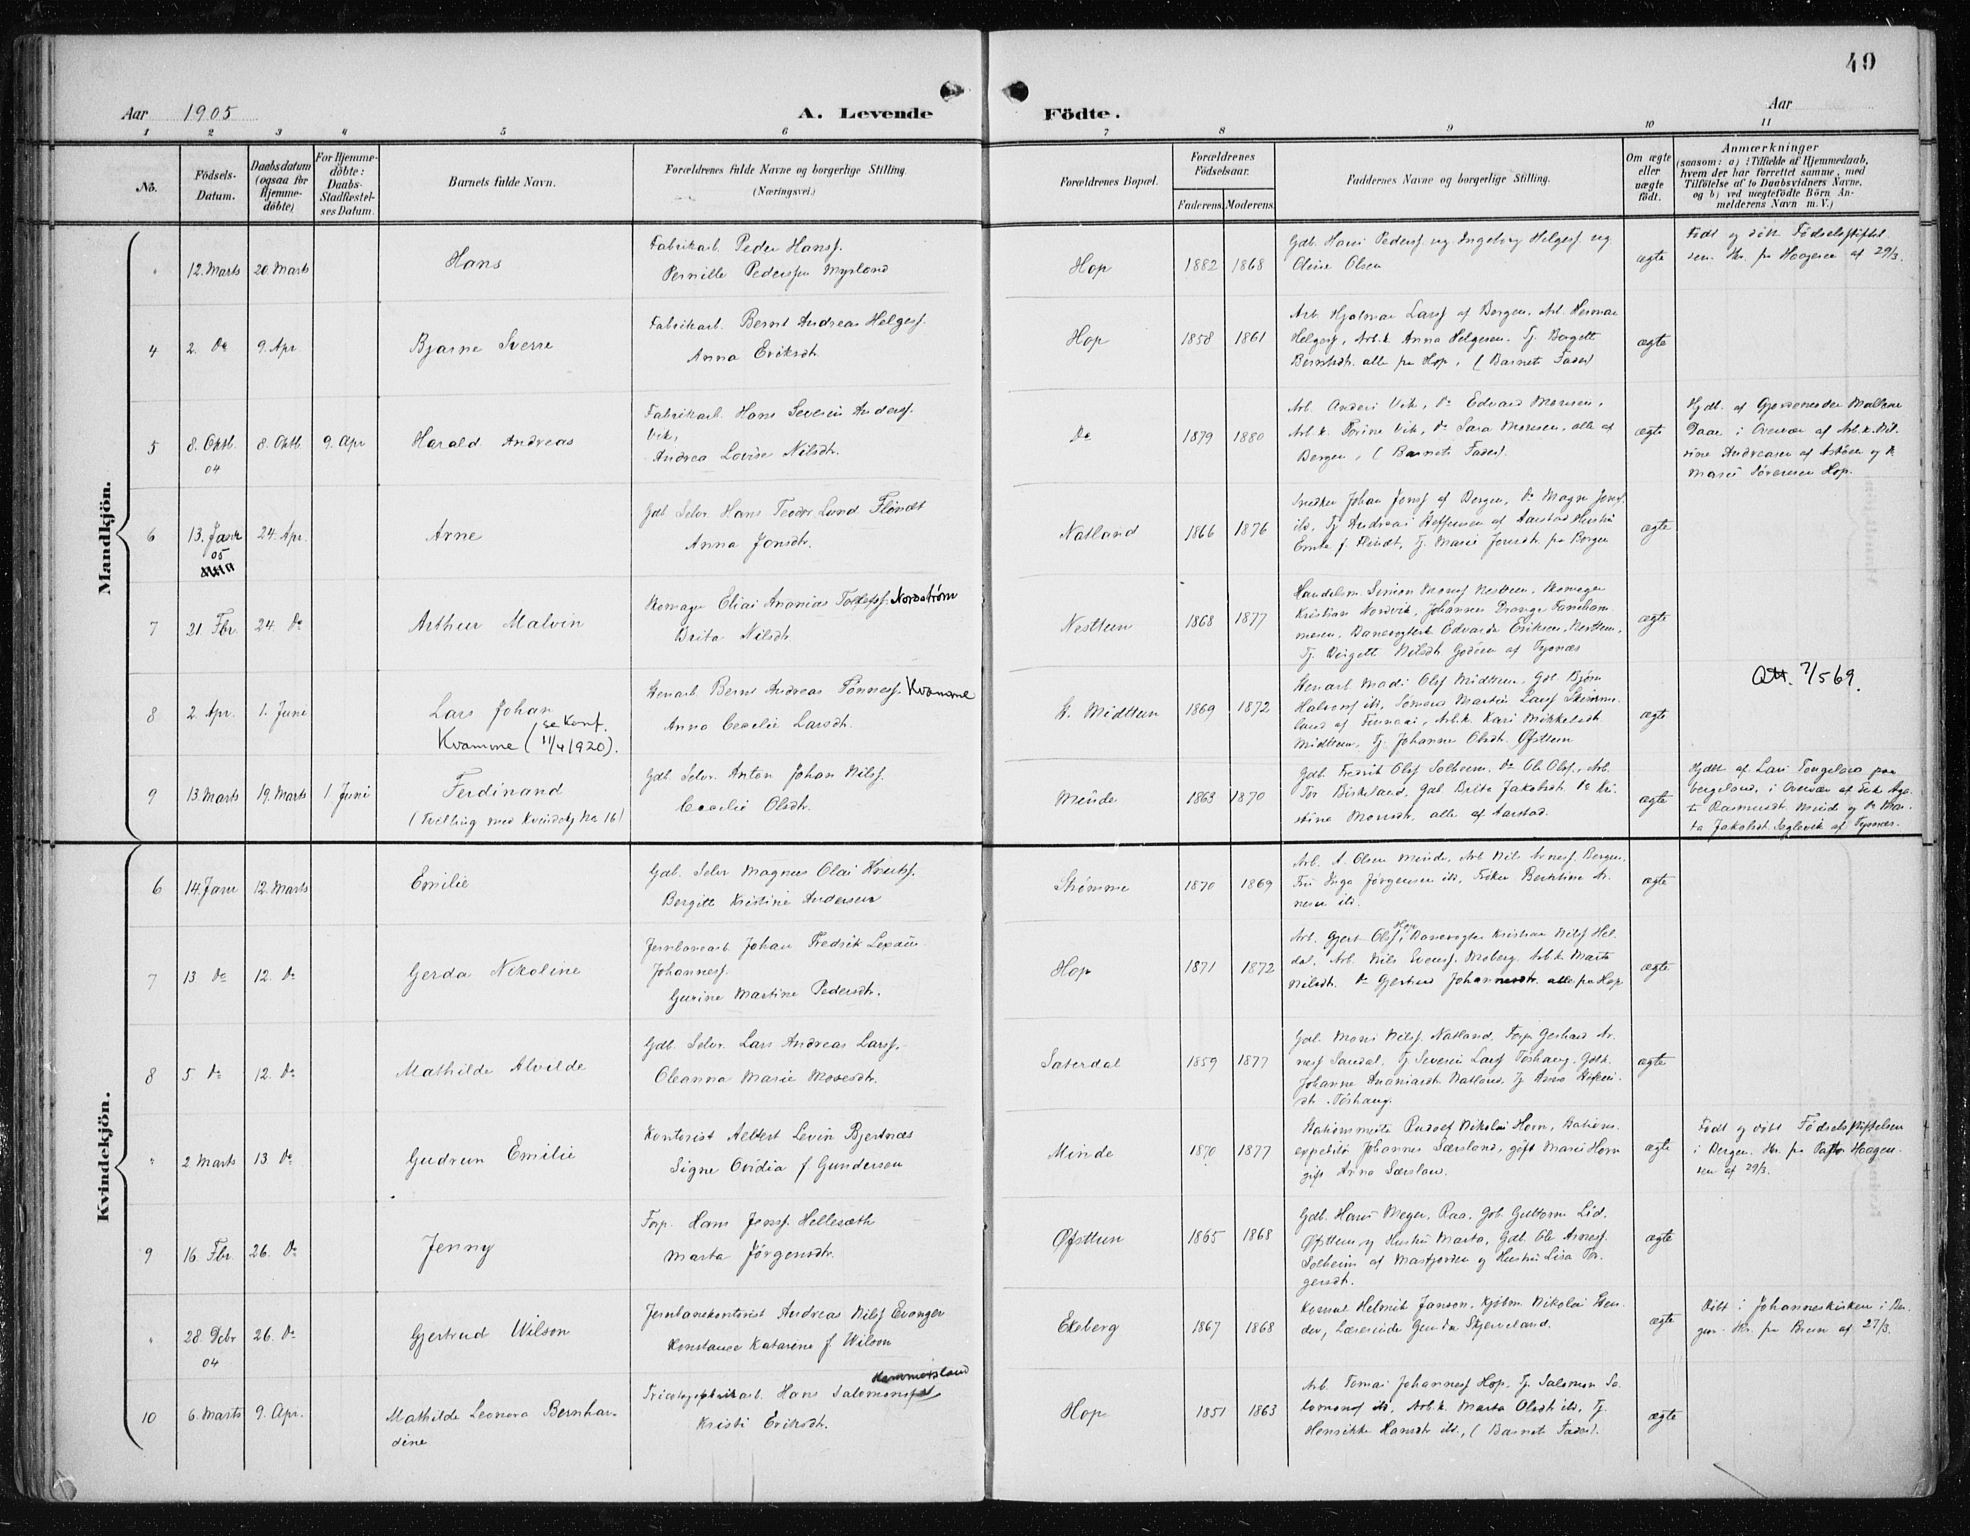 49
Aar 1905
A. Levende
Födte.
Aar
1 2 3 4 5 6 7 8 9 10 11
No.
Födsels-
Datum.
Daabsdatum
(ogsaa for
Hjemme-
döbte)
For Hjemme-
döbte:
Daabs-
Stadfæstel-
ses Datum.
Barnets fulde Navn.
Forældrenes fulde Navne og borgerlige Stilling.
(Næringsvei.)
Forældrenes Bopæl.
Forældrenes
Födselsaar.
Faderens Moderens
Faddernes Navne og borgerlige Stilling.
Om ægte
eller
uægte
födt.
Anmærkninger
(saasom: a) i Tilfælde af Hjemmedaab,
hvem der har forrettet samme, med
Tilföielse af to Daabsvidners Navne,
og b) ved uægtefödte Börn An-
melderens Navn m. V.)
Mandkjön.
" 12. Marts 20. Marts
Hans
Fabrikarb. Peder Hansf.
Pernille Pedersen Myrland
Hop 1882 1868
Gdb. Hans Pedersf og Ingeborg Helgesf og
Oline Olsen
ægte
Født og døbt Fødselsstiftel-
sen. Skr. fra Haagesen af 29/3.
4 2. Do 9. Apr
Bjarne Sverre
Fabrikarb. Bernt Andreas Helgesf.
Anna Eriksdtr.
Hop 1858 1861
Arb. Hjalmar Larsf af Bergen, Arb. Herman
Helgesf, Arb.k. Anna Helgesen. Tj. Borgett
Berntsdtr. alle fra Hop, (Barnets Fader)
ægte
5 8. Oktb. 04 8. Oktb. 9. Apr
Harald Andreas
Fabrikarb. Hans Severin Andersf.
Vik,
Andrea Lovise Nilsdtr.
Do 1879 1880
Arb. Anders Vik, Do Edvard Monsen,
Arb.k. Torine Vik, Do Sara Monsen, alle af
Bergen, (Barnets Fader).
ægte
Hjdb. af Gjordemoder Malene
Daae i Overvær af Arb.k.
Andreasen af Askøen og
Marie Sørensen Hop.
6 13. Janr 05 24. Apr.
Arne
Gdb. Selv. Hans Teodor Lund Flöndt
Anna Jonsdtr.
Natland 1866 1876
Snedker Johan Jonsf af Bergen, Do Magne Jonsf
ibd, Tj Andreas Steffensen af Aarstad Hustru
Emte f. Flindt, Tj. Marie Jonsdtr. fra Bergen
ægte
7 21. Fbr. 24. Do
Arthur Malvin
Skomager Elias Ananias Tollefsf. Nordstrøm
Brita Nilsdtr.
Nesttun 1868 1877
Handelsm. Simon Monsf Nesttun, Skomager
Kristian Nordvik, Johannes Drange Faneham-
meren, Banevogtersk Edvarda Eriksen, Nesttun,
Tj. Birgett Nilsdtr Godøen af Tysnæs
ægte
8 2. Apr. 1. Juni
Lars Johan
Kvamme (se Konf. 11/4 1920).
Stenarb Bernt Andreas Tønnesf. Kvamme
Anna Cecilie Larsdtr.
N. Midttun 1869 1872
Stenarb Mads Olsf Midttun, Gdb Bjørn
Halvorsf ibd, Tømerm Martin Larsf
land af Finnaas, Arb.k. Kari Mikkelsdtr
Midttun, Tj. Johanne Olsdtr. Øfsttun
ægte
Att. 7/5 69.
9 13. Marts 19. Marts 1. Juni
Ferdinand
(Tvilling med Kvindekj No 16)
Gdb. Selv. Anton Johan Nilsf.
Cecilie Olsdtr.
Minde 1863 1870
Gdb. Fredrik Olsf Solheim, Do Ole Olsf., Arb.
Tor Birkeland, Gdb Brita Jakobsdtr Do Kri-
stine Monsdtr, alle af Aarstad.
ægte
Hjdbt af Lars Tongeland paa
Bergeland, i Overvær af
Rasmusdtr Minde og Do
Jakobsdtr af Tysnæs.
Kvindekjön.
6 14. Janr 12. Marts
Emilie
Gdb. Selv Magnus Olai Knutsf.
Bergitte Kristine Andersen
Strømme 1870 1869
Arb. A. Olsen Minde, Arb Nils Arnesf. Bergen,
Fru Inga Jørgensen ibd, Frøken Berntine Ar-
nesen ibd.
ægte
7 13 Do 12. Do
Gerda Nikoline
Jernbanearb. Johan Fredrik Lexau
Johannesf.
Gurine Martine Pedersdtr.
Hop 1871 1872
Arb. Gjert Olsf, Hop, Banevogter Kristian Nilsf Hel-
dal, Arb. Nils Evensf. Moberg, Arb.k Marta
Nilsdtr. Do Gjertrud Johannesdtr. alle fra Hop
ægte
8 5. Do 12. Do
Mathilde Alvilde
Gdb. Selv. Lars Andreas Larsf.
Oleanna Marie Mo​nsdtr.
Sæterdal 1859 1877
Gdb. Mons Nilsf. Natland, Forp Gerhard Ar-
nesf Sandal, Tj. Severin Larsf Toshaug. Gdbk.
Johanne Ananiasdtr Natland, Tj Anna
dtr. Toshaug.
ægte
" 2 Marts 13. Do
Gudrun Emilie
Kontorist Aelbert Levin Bjertnæs
Signe Ovidia f Gundersen
Minde 1870 1877
Stationsmester Rudolf Nikolai Horn, Stations-
expeditør Johannes Særsland, gift Marie Horn
gift Anna Særsland.
ægte
Født og døbt Fødselsstiftelsen
i Bergen. Skr. fra Pastor Haagen-
sen af 29/3.
9 16. Fbr. 26. Do
Jenny
Forp. Hans Jensf. Hellesæth
Marta Jörgensdtr.
Øfsttun 1865 1868
Gdb. Hans Meyer, Raa, Gdb. Guttorm Lid,
Øfsttun og Hustru Marta, Gdb Ole Arnesf.
Solheim af Masfjorden og Hustru Lisa Tor-
gersdtr.
ægte
" 28. Dcbr 04 26. Do
Gjertrud Wilson
Jernbanekontorist Andreas Nilsf Evanger
Konstance Katarine f Wilson
Ekeberg 1867 1868
Helmik Janson, Kjøbm. Nikolai Hen-
der, Lærerinde Gunda Skjerveland.
ægte
Døbt i Johanneskirken i Ber-
gen. Skr. fra Brun af 27/3.
10 6. Marts 9. Apr.
Mathilde Leonora Bernhar-
dine
Hammersland
Tricotagefabrikarb. Hans Salomonsf.
Kristi Eriksdtr.
Hop 1851 1863
Arb. Tomas Johannesf Hop, Tj. Salomon Sa-
lomonsf ibd, Arb.k. Marta Olsdtr ibd, Tj.
Henrikke Hansdtr ibd, (Barnets Fader).
ægte